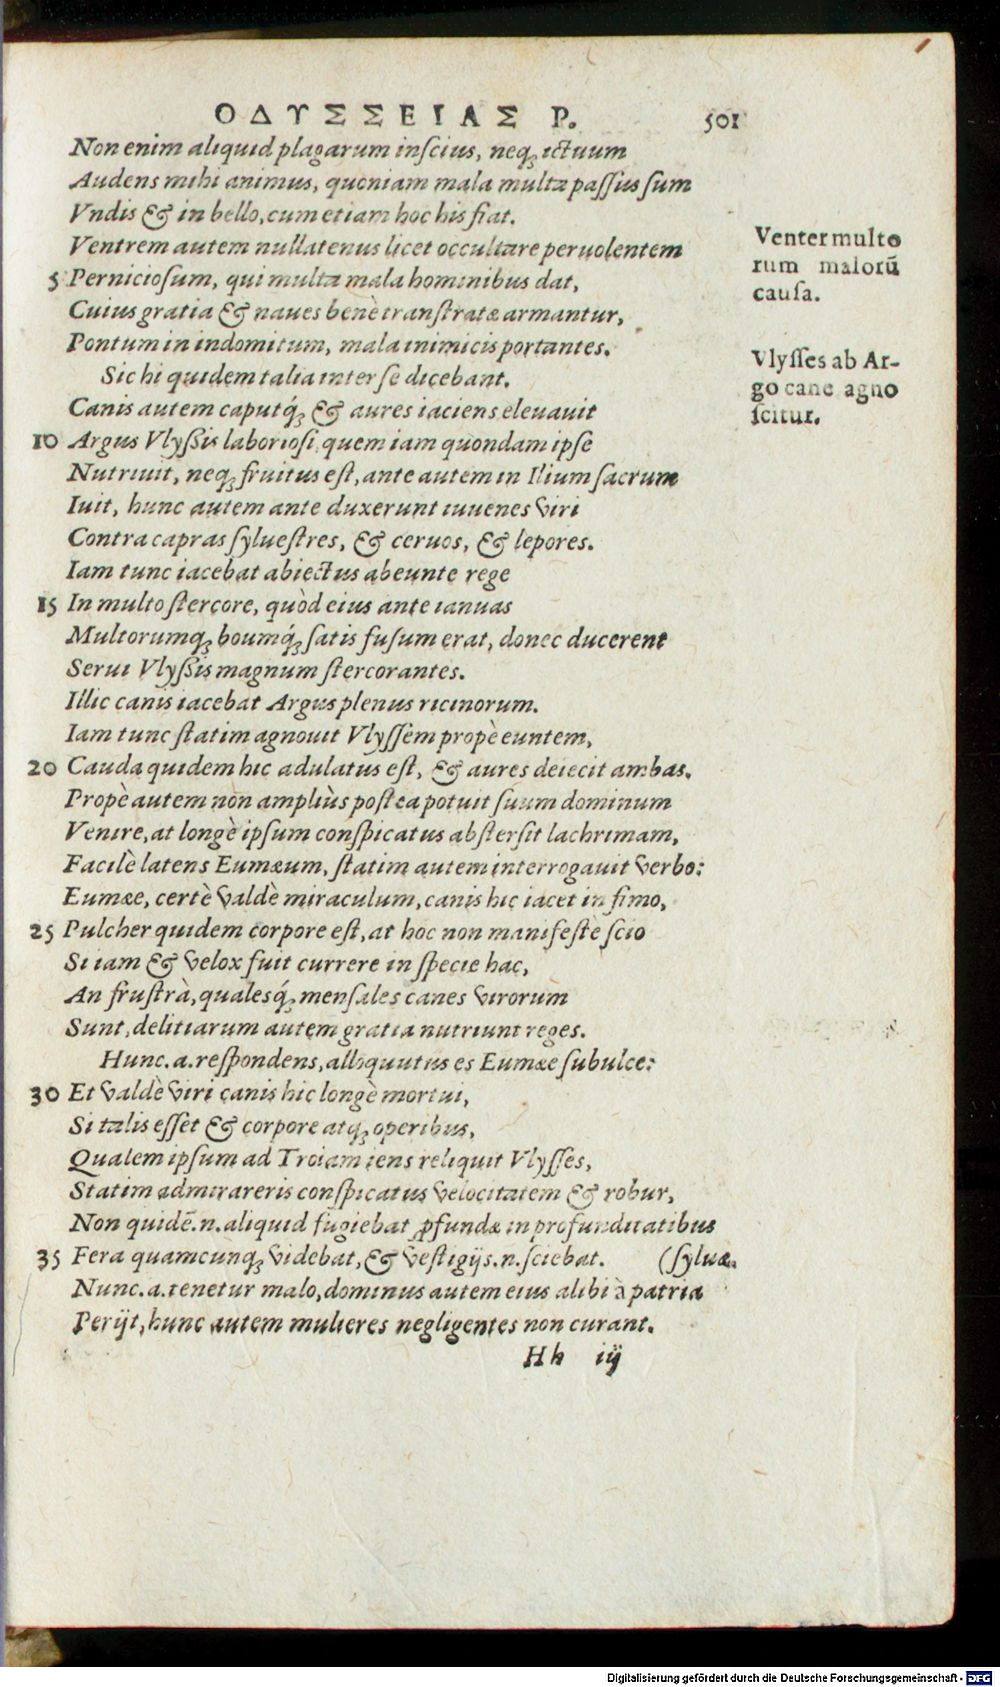 ΟΔΥΣΣΕΙΑΣ Ρ. 501
Non enim aliquid plagarum inſcius, neqꝫ ictuum
Audens mihi animus, quoniam mala multa paſſus ſum
Vndis & in bello, cum etiam hoc his fiat.
Ventrem autem nullatenus licet occultare peruolentem
5 Pernicioſum, qui multa mala hominibus dat,
Cuius gratia & naues benè tranſtratæ armantur,
Pontum in indomitum, mala inimicis portantes.
Sic hi quidem talia inter ſe dicebant.
Canis autem caputq́ꝫ & aures iaciens eleuauit
10 Argus Vlyſsis laborioſi, quem iam quondam ipſe
Nutriuit, neqꝫ fruitus eſt, ante autem in Ilium ſacrum
Iuit, hunc autem ante duxerunt iuuenes viri
Contra capras ſylueſtres, & ceruos, & lepores.
Iam tunc iacebat abiectus abeunte rege
15 In multo ſtercore, quòd eius ante ianuas
Multorumqꝫ boumq́ꝫ ſatis fuſum erat, donec ducerent
Serui Vlyſsis magnum ſtercorantes.
Illic canis iacebat Argus plenus ricinorum.
Iam tunc ſtatim agnouit Vlyſſem propè euntem,
20 Cauda quidem hic adulatus eſt, & aures deiecit ambas.
Propè autem non ampliùs poſtea potuit ſuum dominum
Venire, at longè ipſum conſpicatus abſterſit lachrimam,
Facilè latens Eumæum, ſtatim autem interrogauit verbo:
Eumæe, certè valdè miraculum, canis hic iacet in fimo,
25 Pulcher quidem corpore eſt, at hoc non manifeſtè ſcio
Si iam & velox fuit currere in ſpecie hac,
An fruſtrà, qualesq́ꝫ menſales canes virorum
Sunt, delitiarum autem gratia nutriunt reges.
Hunc .a. reſpondens, alloquutus es Eumæe ſubulce:
30 Et valdè viri canis hic longè mortui,
Si talis eſſet & corpore atqꝫ operibus,
Qualem ipſum ad Troiam iens reliquit Vlyſſes,
Statim admirareris conſpicatus velocitatem & robur,
Non quidē .n. aliquid fugiebat ꝓfundæ in profunditatibus
35 Fera quamcunqꝫ videbat, & veſtigijs .n. ſciebat. (ſyluæ.
Nunc .a. tenetur malo, dominus autem eius alibi à patria
Perijt, hunc autem mulieres negligentes non curant.
Hh iij
Venter multo
rum malorū
cauſa.
Vlyſſes ab Ar-
go cane agno
ſcitur.
Digitalisierung gefördert durch die Deutsche Forschungsgemeinschaft - DFG